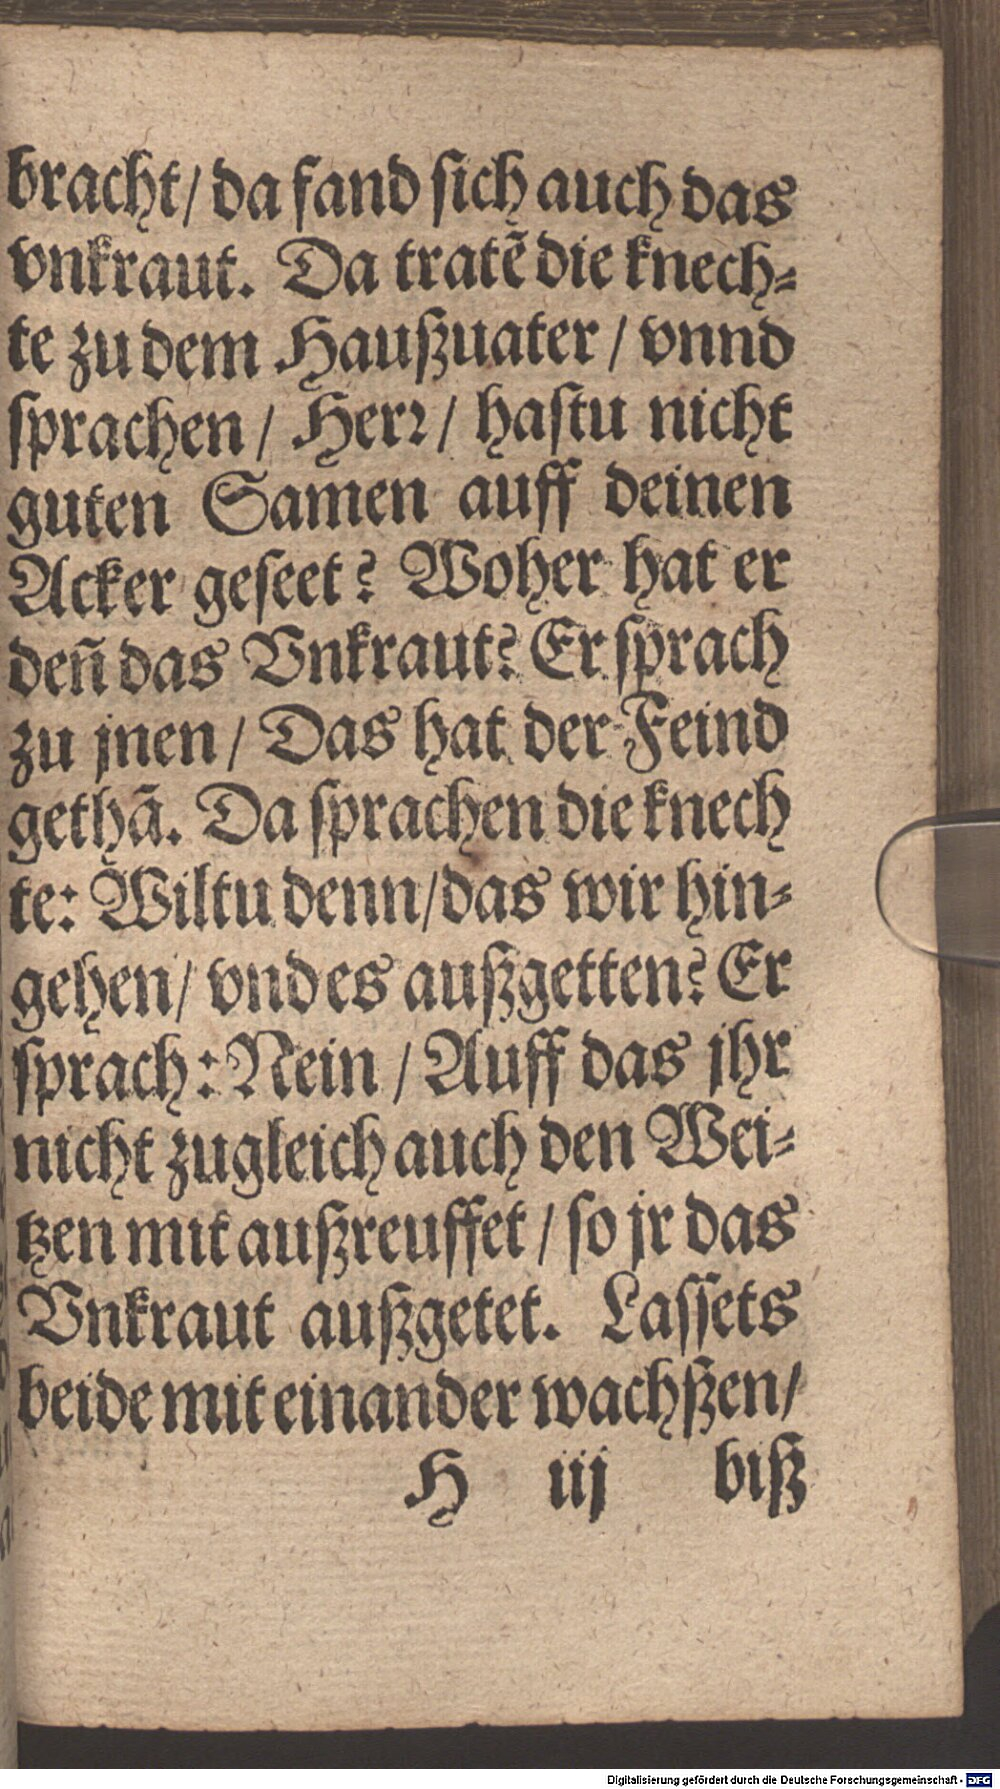 bracht/ da fand sich auch das
vnkraut. Da tratẽ die knech-
te zu dem Haußuater / vnnd
sprachen / Herr / hastu nicht
guten Samen auff deinen
Acker geseet? Woher hat er
deñ das Vnkraut? Er sprach
zu jnen / Das hat der Feind
gethã. Da sprachen die knech
te: Wiltu denn/das wir hin-
gehen/ vnd es außgetten? Er
sprach: Nein / Auff das jhr
nicht zugleich auch den Wei-
tzen mit außreuffet / so jr das
Vnkraut außgetet. Lassets
beide mit einander wachßen/
H iij biß
Digitalisierung gefördert durch die Deutsche Forschungsgemeinschaft - DFG